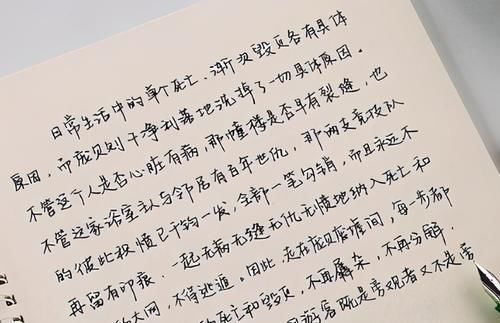 日常生活中的单个死亡、渐次毁灭各有具体
原因，而庞贝则干净利落地洗掉了一切具体原因。
不管这个人是否心脏有病，那幢楼是否早有裂缝，也
不管这家浴室主人与邻居有百年世仇，那两支竞技队
的彼此积愤已千钧一发，全部一笔勾销，而且永远不
再留有印痕。一起无病无缝无仇无愤地纳入死亡和
的大网，不得逃遁。因此，走在庞贝废墟间，每一步都
的死亡和毁灭，不再羼杂，不再分解。
游客既是旁观者又不是旁